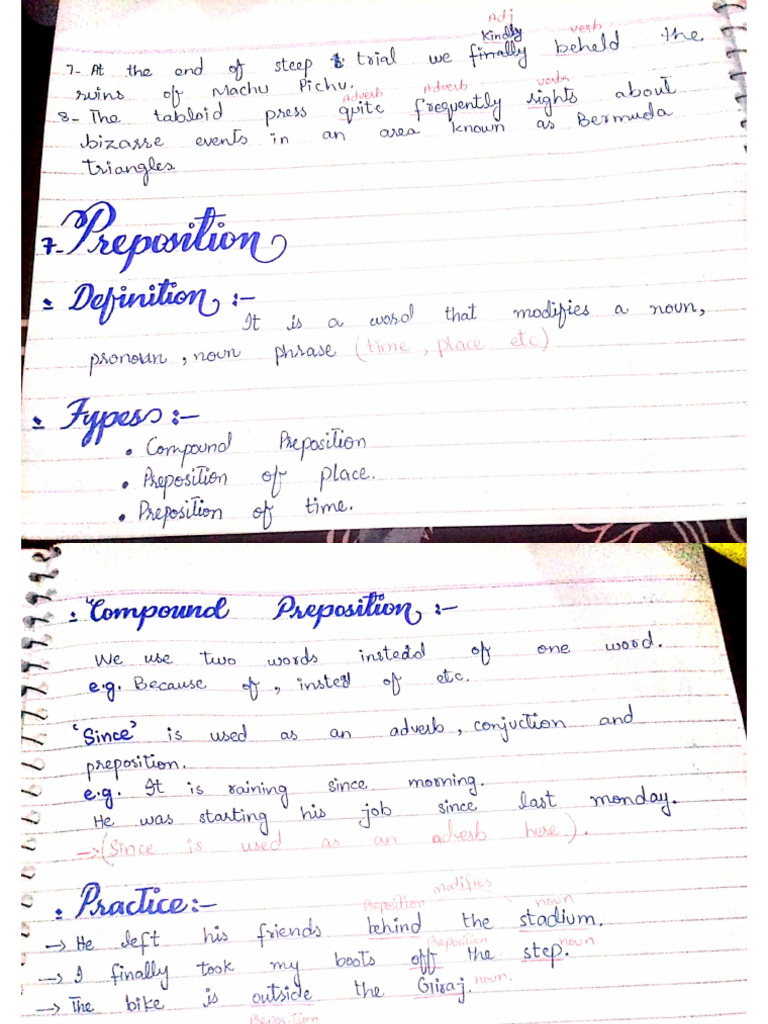 Adj
Kindly verb
7- At the end of steep & trial we finally beheld the
ruins of Machu Pichu.
Adverb Adverb verb
8- The tabloid press quite frequently rights about
bizasse events in an area known as Bermuda
triangles.
7- Preposition
Definition :-
It is a word that modifies a noun,
pronoun, noun phrase (time, place etc)
Types :-
• Compound Preposition
• Preposition of place.
• Preposition of time.
Compound Preposition :-
We use two words instead of one word.
e.g. Because of, insted of etc.
'Since' is used as an adverb, conjuction and
preposition.
e.g. It is raining since morning.
He was starting his job since last monday.
→ (Since is used as an adverb here).
Practice :-
Preposition matifies noun
→ He left his friends behind the stadium.
preposition noun
→ I finally took my boots off the step.
→ The bike is outside the Giraj. noun.
Preposition